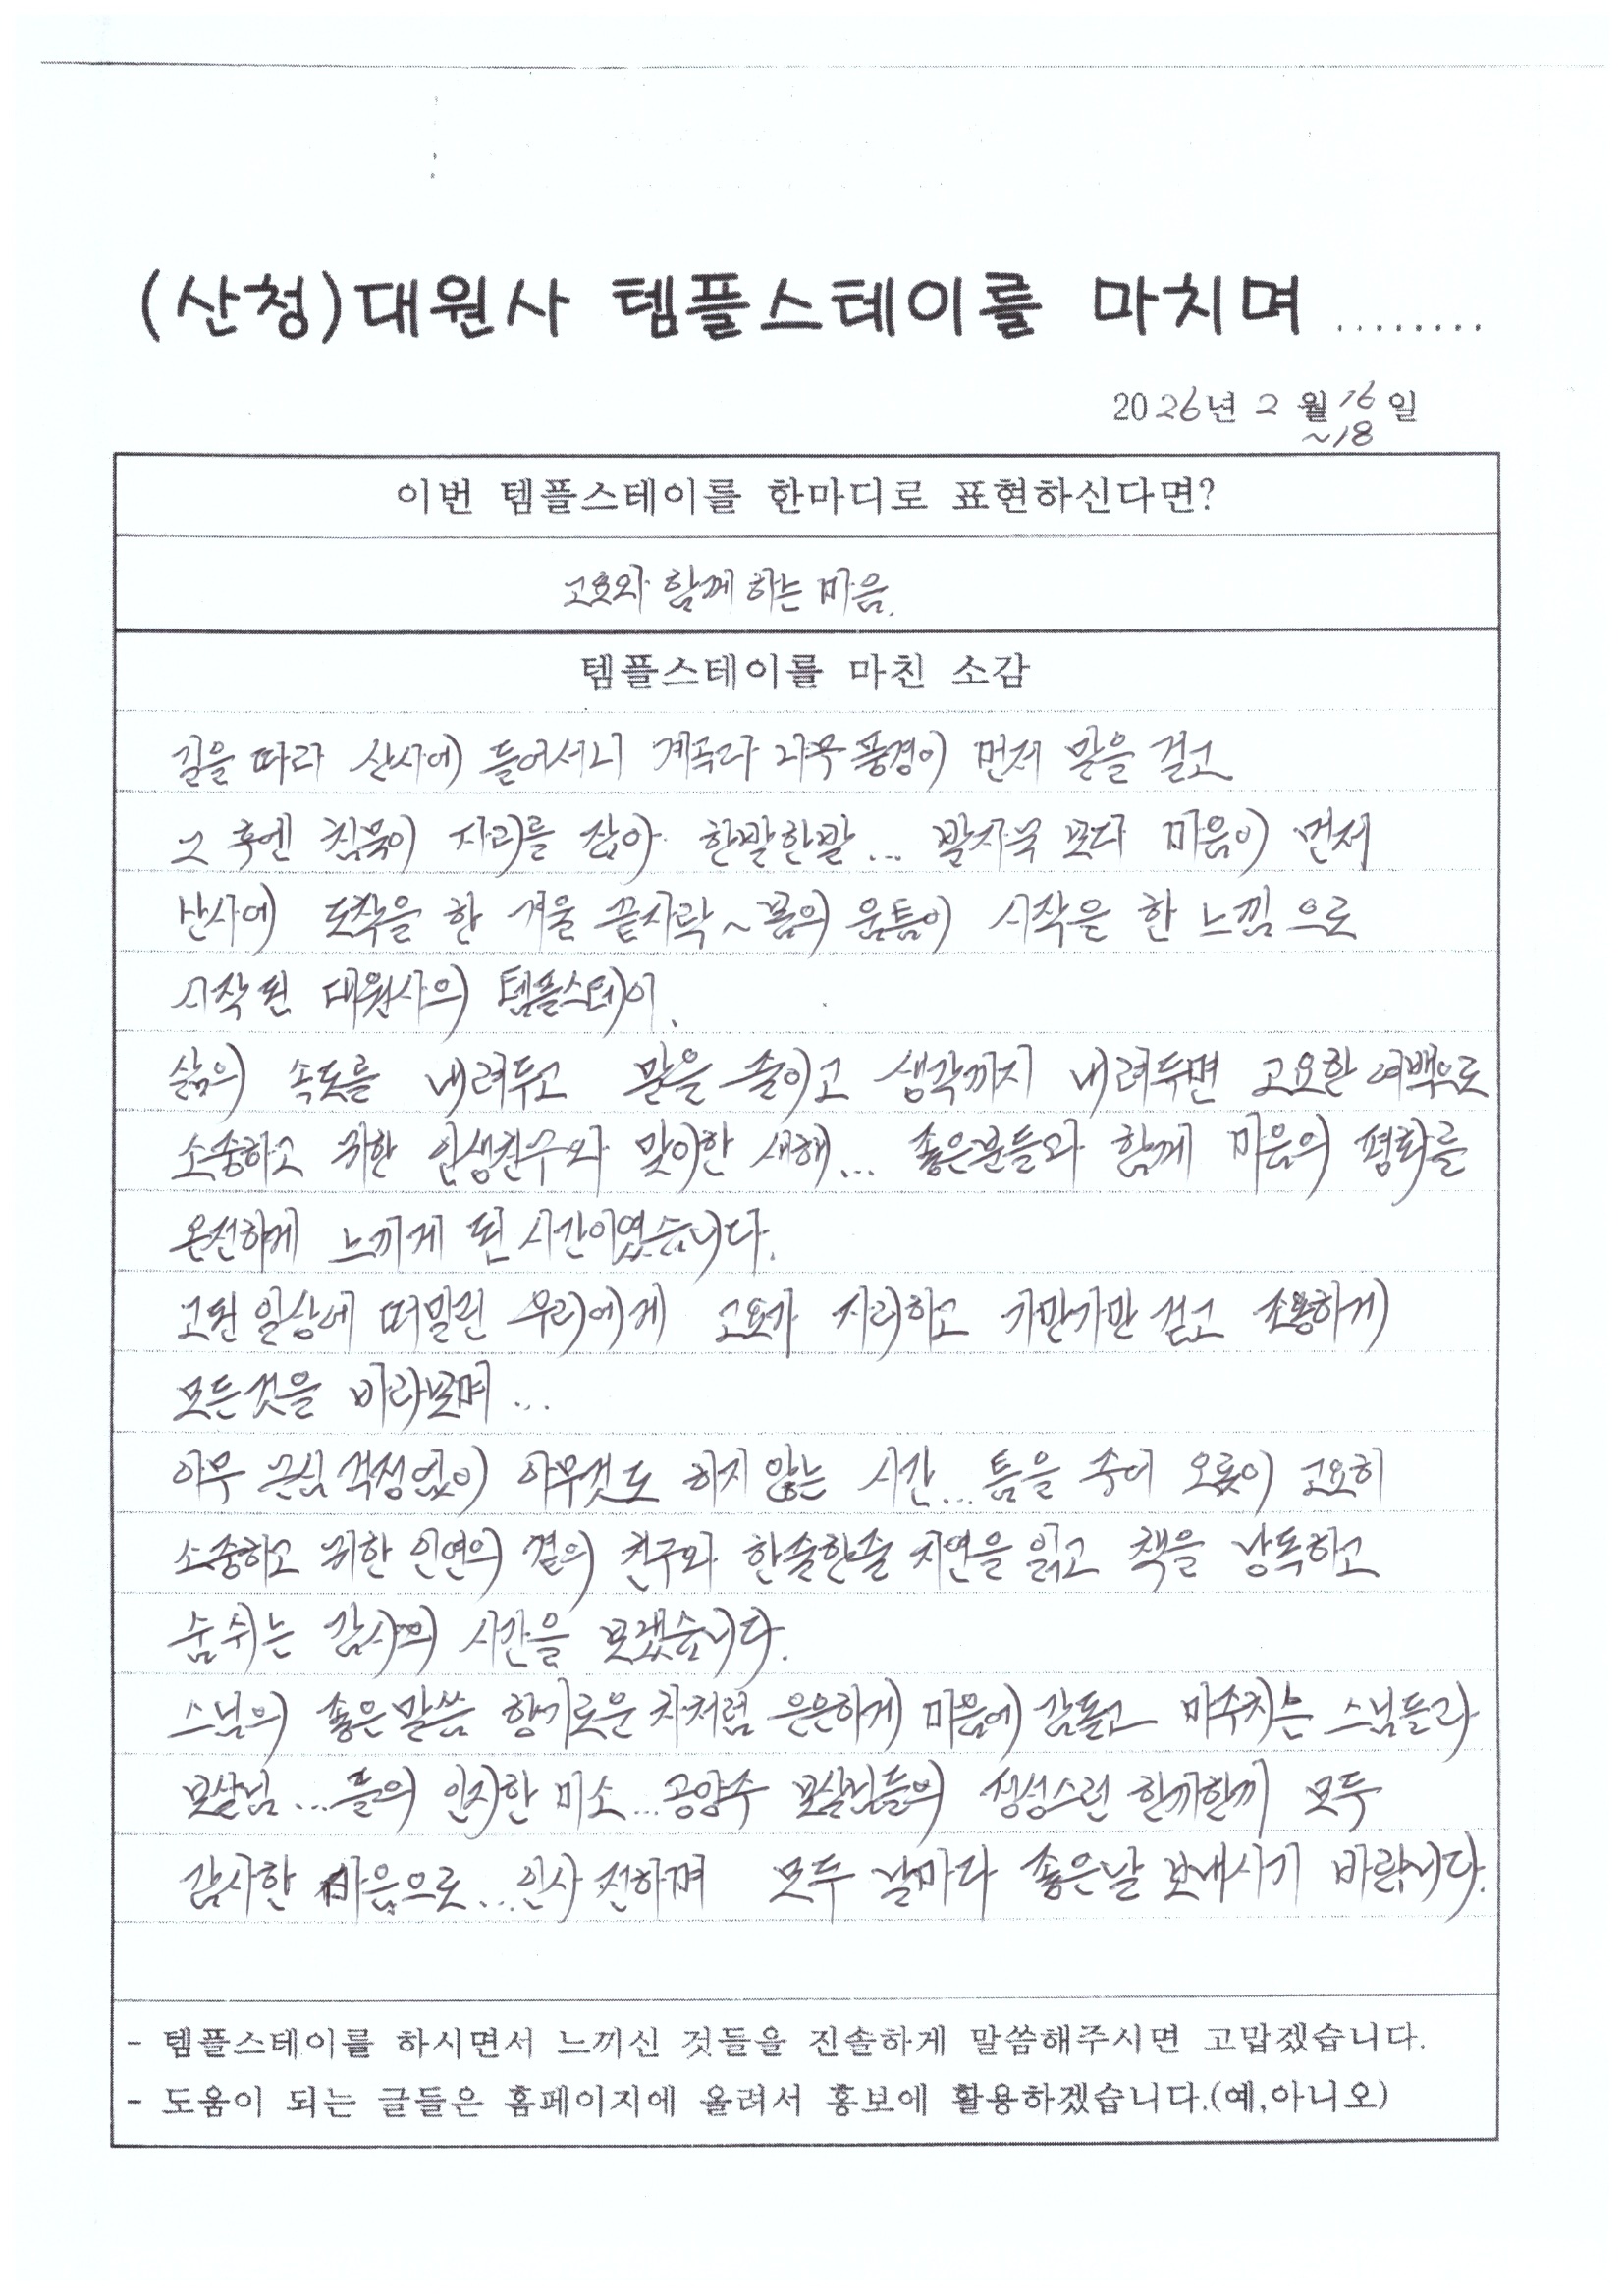 (산청)대원사 템플스테이를 마치며........
2026년 2월 16일
~18
이번 템플스테이를 한마디로 표현하신다면?
고요와 함께 하는 마음.
템플스테이를 마친 소감
길을 따라 산사에 들어서니 계곡과 나무 풍경이 먼저 말을 걸고
그 후엔 침묵이 자리를 잡아 한발한발... 발자국 보다 마음이 먼저
산사에 도착을 한 겨울 끝자락~봄의 움틈이 시작은 한 느낌으로
시작된 대원사의 템플스테이.
삶의 속도를 내려두고 말을 줄이고 생각까지 내려두면 고요한 여백으로
소중하고 귀한 인생친구와 맞이한 새해... 좋은분들과 함께 마음의 평화를
온전하게 느끼게 된 시간이였습니다.
고된 일상에 떠밀린 우리에게 고요가 자리하고 가만가만 걷고 조용하게
모든것을 바라보며...
아무 근심 걱정없이 아무것도 하지 않는 시간...틈을 주어 오롯이 고요히
소중하고 귀한 인연의 곁의 친구와 한줄한줄 자연을 읽고 책을 낭독하고
숨쉬는 감사의 시간을 보냈습니다.
스님의 좋은말씀 향기로운 차처럼 은은하게 마음에 감돌고 마주치는 스님들과
보살님...들의 인자한 미소...공양주 보살님들의 정성스런 한끼한끼 모두
감사한 마음으로...인사 전하며 모두 날마다 좋은날 보내시기 바랍니다.
- 템플스테이를 하시면서 느끼신 것들을 진솔하게 말씀해주시면 고맙겠습니다.
- 도움이 되는 글들은 홈페이지에 올려서 홍보에 활용하겠습니다.(예,아니오)